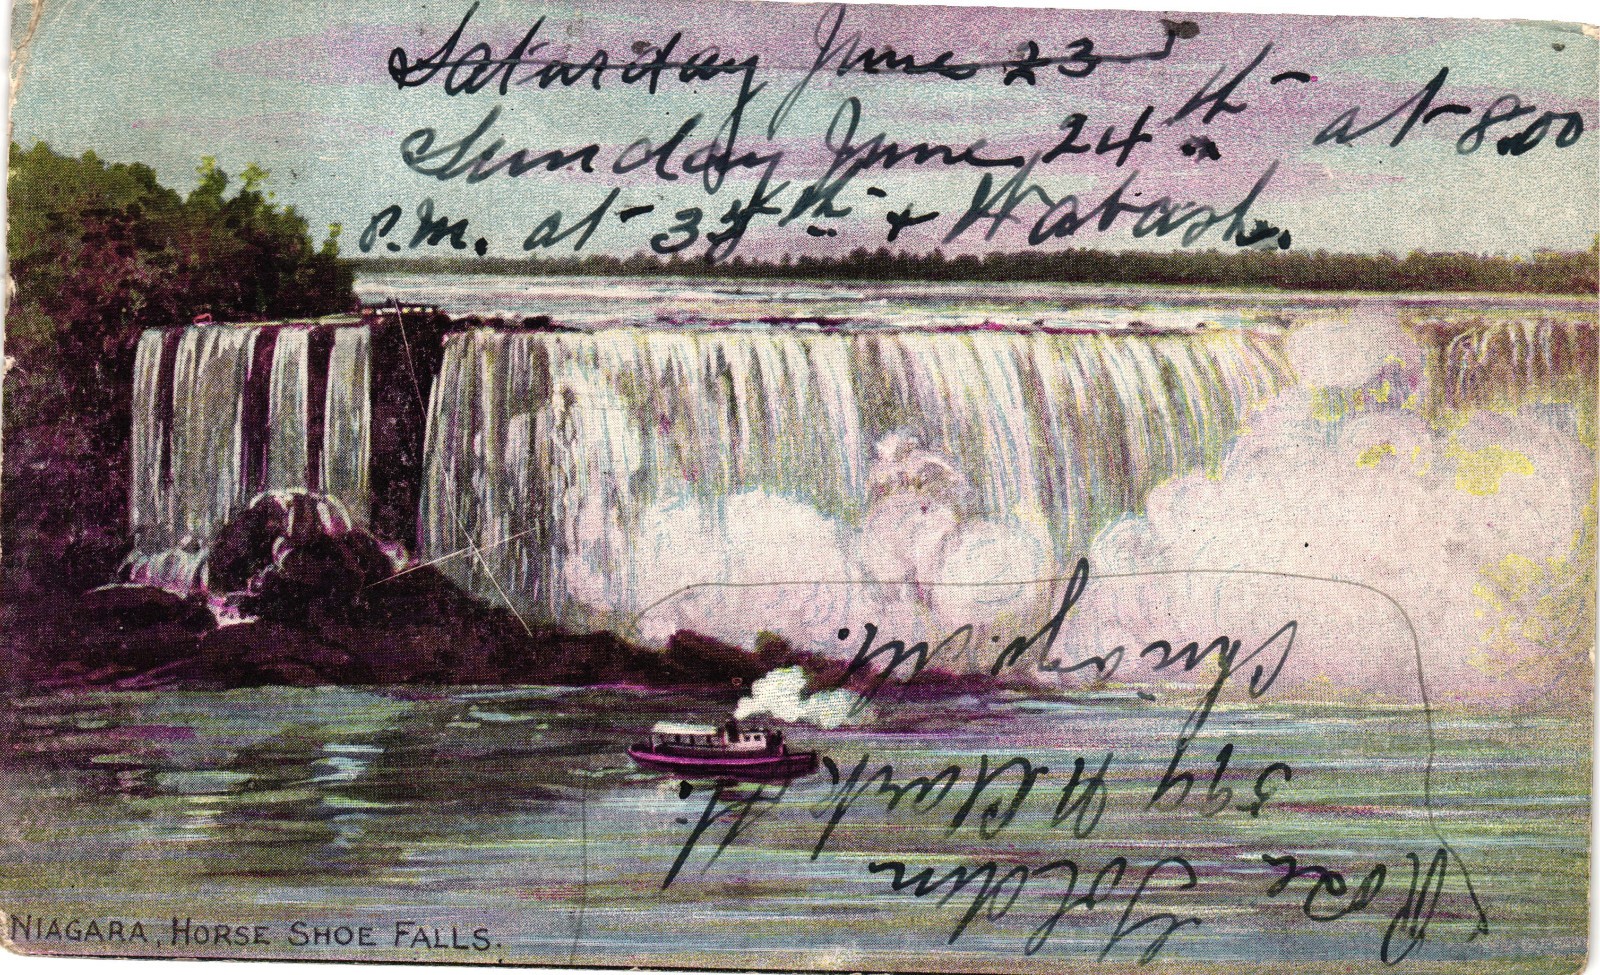 Saturday June 23rd
Sunday June 24th at 8.00
P.M. at 35th + Wabash.
Rose Golden
594 N Clark St.
Chicago. Ill.
NIAGARA, HORSE SHOE FALLS.